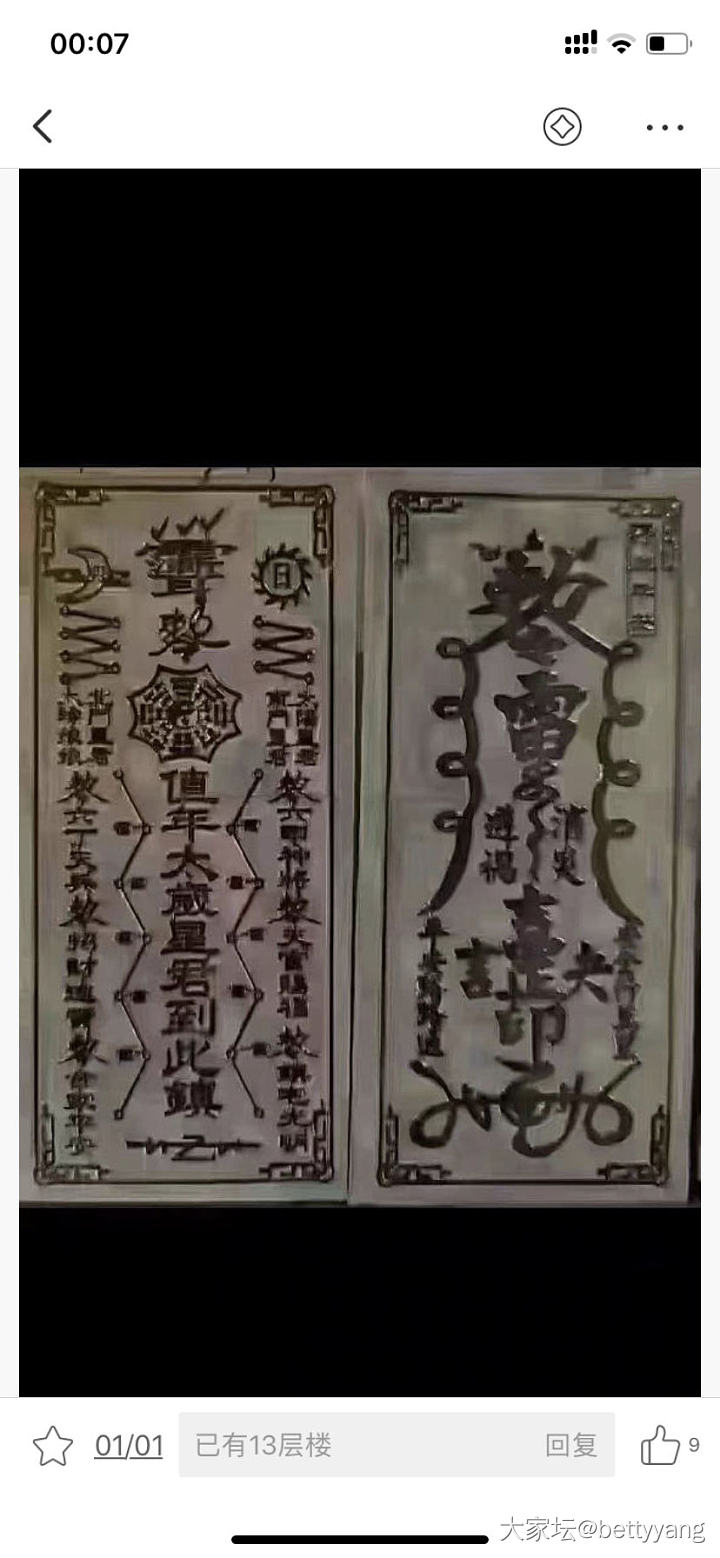 00:07
敕
日
北斗星君
太陽星君
南斗星君
值年太歲星君到此鎮
敕六丁天兵
敕六甲神將
敕招財進寶
敕天官賜福
敕合家平安
敕鎮宅光明
敕
雷
消災
平安
印
01/01
已有13层楼
回复
9
大家坛@bettyyang